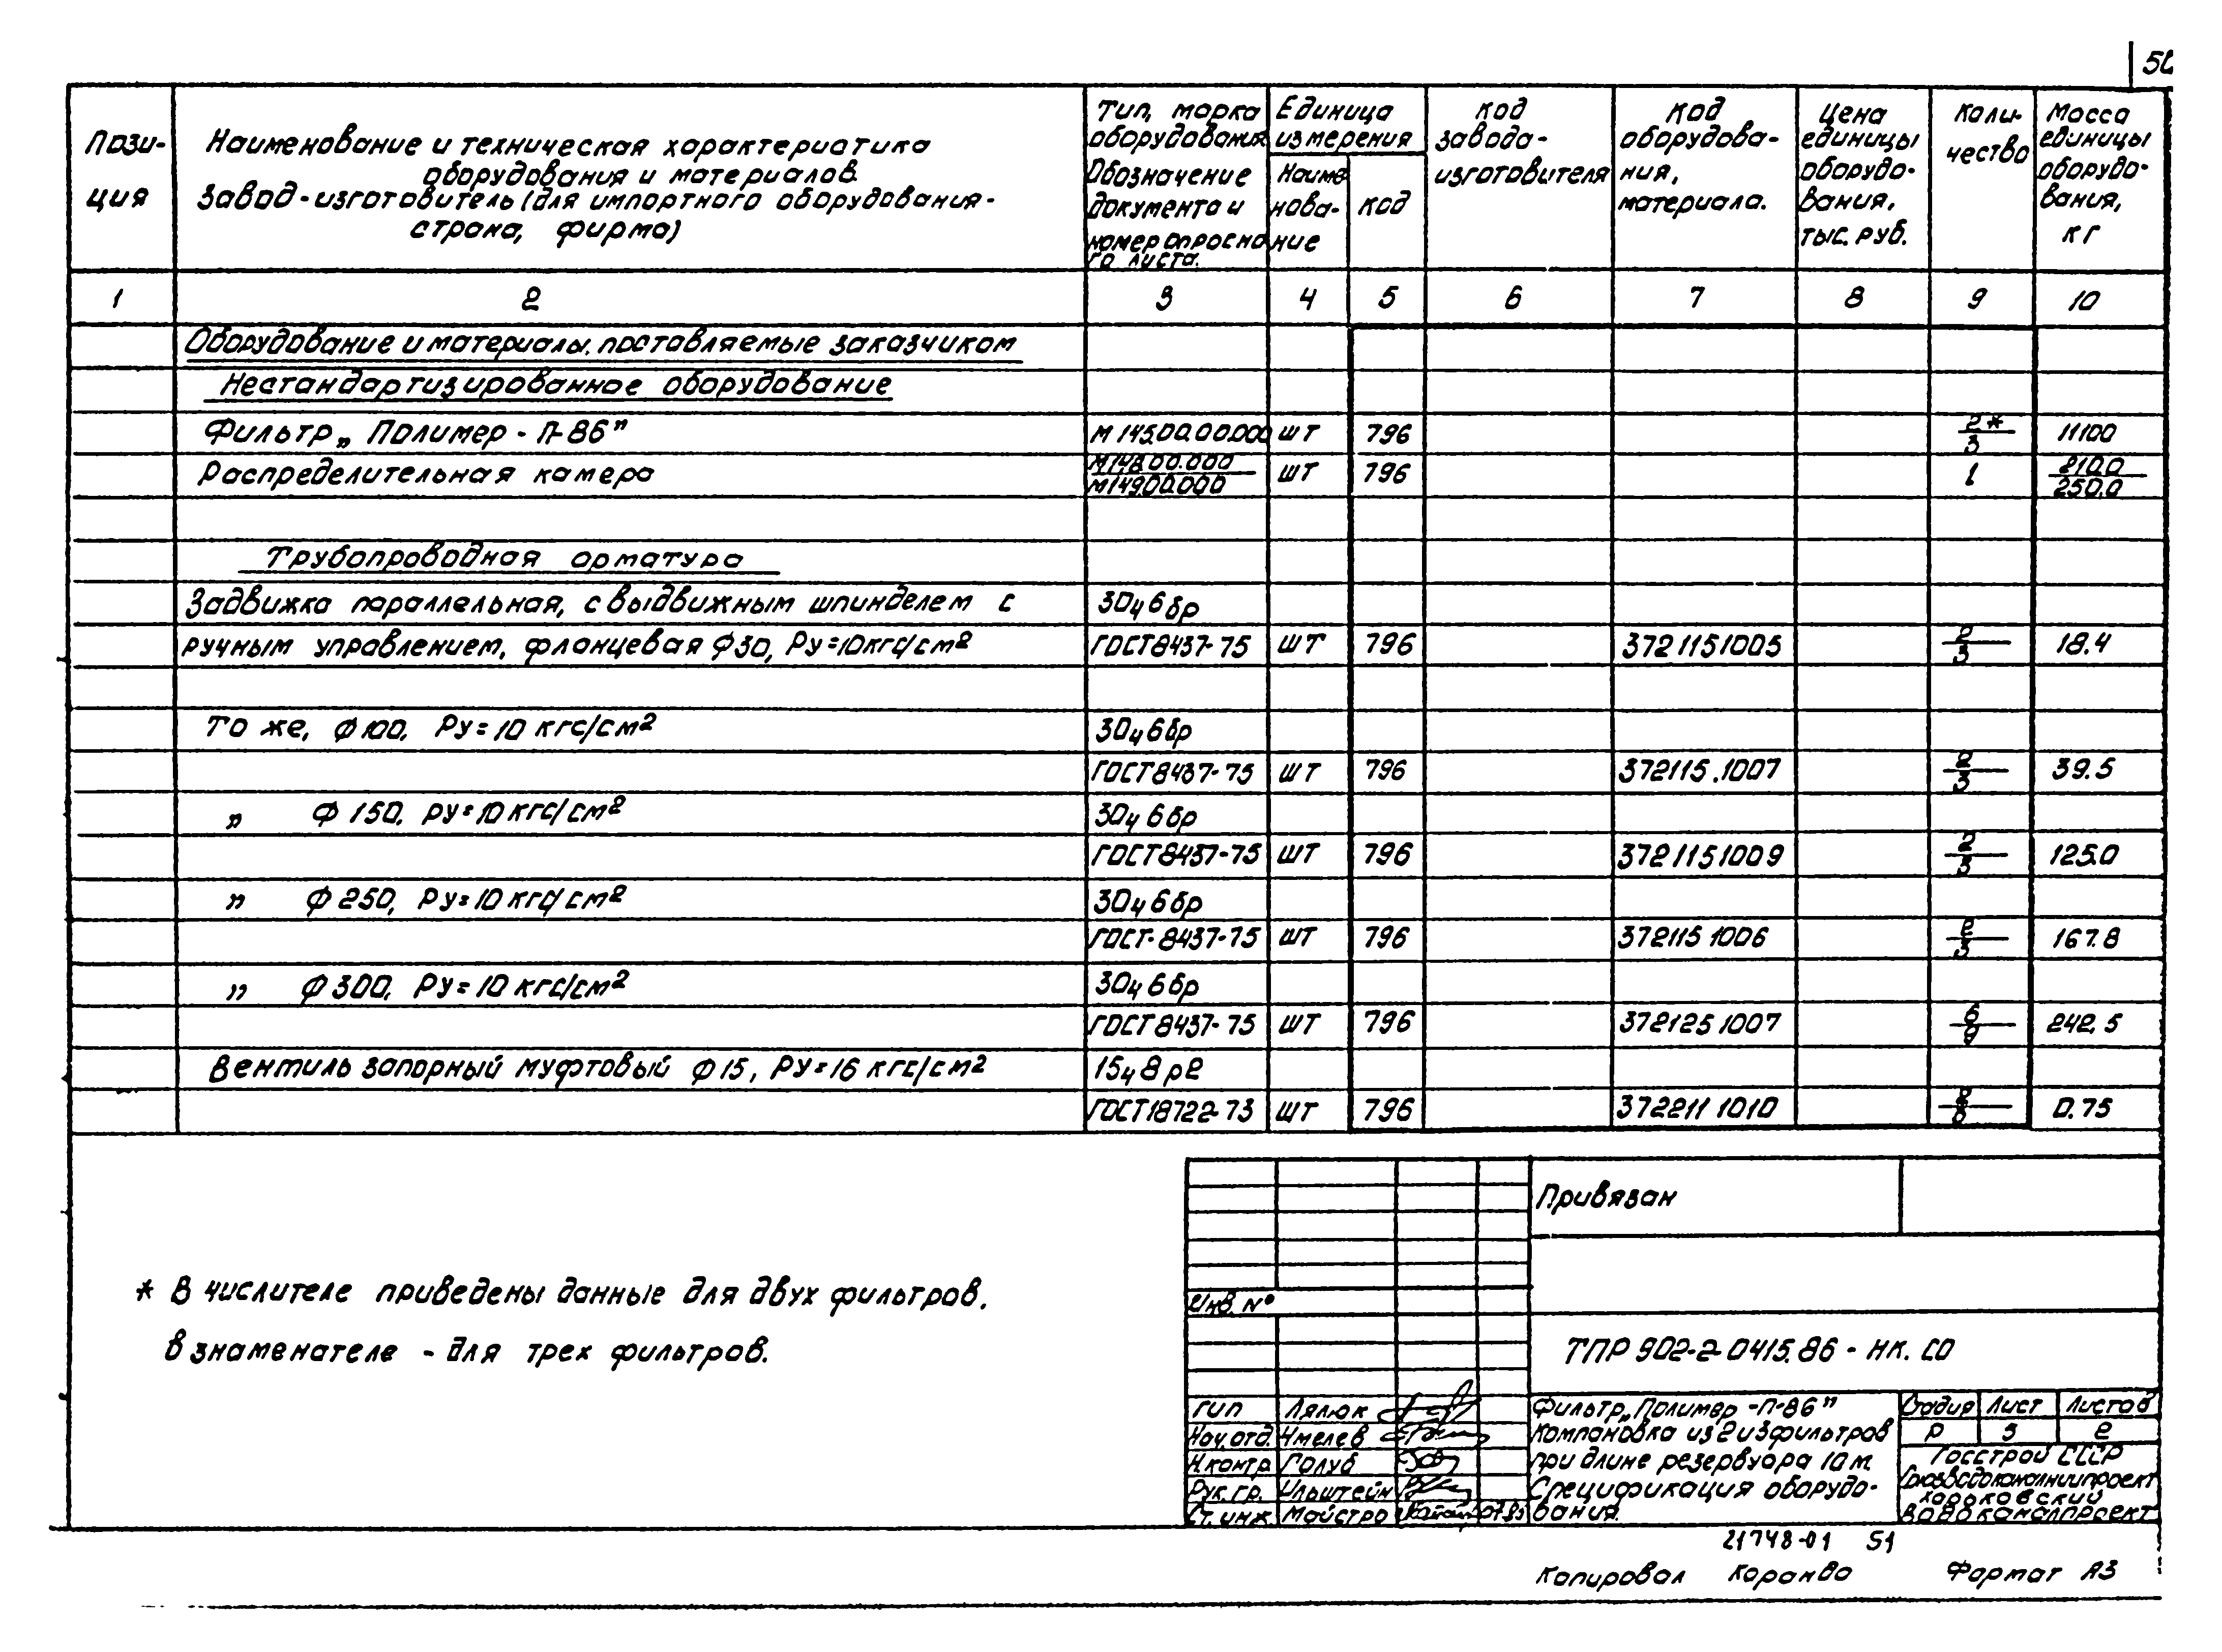 Пози-
ция
Наименование и техническая характеристика
оборудования и материалов.
Завод-изготовитель (для импортного оборудования-
страна, фирма)
Тип, марка
оборудования
Обозначение
документа и
номер опросно
го листа.
Единица
измерения
Наиме
нова-
ние
код
код
завода-
изготовителя
Код
оборудова-
ния,
материала.
Цена
единицы
оборудо-
вания,
тыс. руб.
Коли-
чество
Масса
единицы
оборудо-
вания,
кг
1 2 3 4 5 6 7 8 9 10
Оборудование и материалы, поставляемые заказчиком
Нестандартизированное оборудование
Фильтр „Полимер - П-86" М 145.00.00.000 шт 796 2*/3 11100
Распределительная камера М148.00.000/М149.00.000 шт 796 1 210.0/250.0
Трубопроводная арматура
Задвижка параллельная, с выдвижным шпинделем с 30ч6бр
ручным управлением, фланцевая Ф30, Ру=10кгс/см² ГОСТ8437-75 шт 796 3721151005 2/3 18.4
То же, Ф100, Ру=10 кгс/см² 30ч6бр
ГОСТ8437-75 шт 796 372115.1007 2/3 39.5
„ Ф 150, Ру=10кгс/см² 30ч6бр
ГОСТ8437-75 шт 796 3721151009 2/3 125.0
„ Ф 250, Ру=10 кгс/см² 30ч6бр
ГОСТ-8437-75 шт 796 372115 1006 2/3 167.8
„ Ф 300, Ру=10 кгс/см² 30ч6бр
ГОСТ8437-75 шт 796 372125 1007 6/9 242.5
Вентиль запорный муфтовый Ф15, Ру=16 кгс/см² 15ч8р2
ГОСТ18722-73 шт 796 372211 1010 0.75
* В числителе приведены данные для двух фильтров.
в знаменателе - для трех фильтров.
Привязан
Инв. №
ТПР 902-2-0415.86 - НК. СО
ГИП Лялюк
Нач.отд. Чмелев
Н.контр. Голуб
Рук. гр. Ильштейн
Ст. инж Майстро
Фильтр „Полимер -П-86"
Компановка из 2 и 3 фильтров
при длине резервуара 10м.
Спецификация оборудо-
вания.
Стадия Лист Листов
Р 2
Госстрой СССР
Союзводоканалниипроект
Харьковский
Водоканалпроект
21748-01 51
Копировал Формат А3